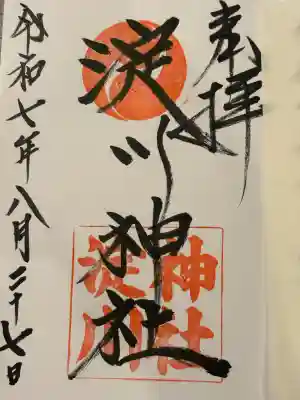 奉拝
淀川神社
神社
淀川
令和七年八月二十七日